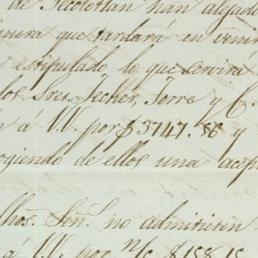 de Tecolotlan han alejado
nera que tardará en venir
estipulado lo que servira
los Sres. Jecker, Torre y C.
n á V. por $3747.58 y
ogiendo de ellos una acep
lhos. Señ. no admitiren
á V. por n/c $158.15